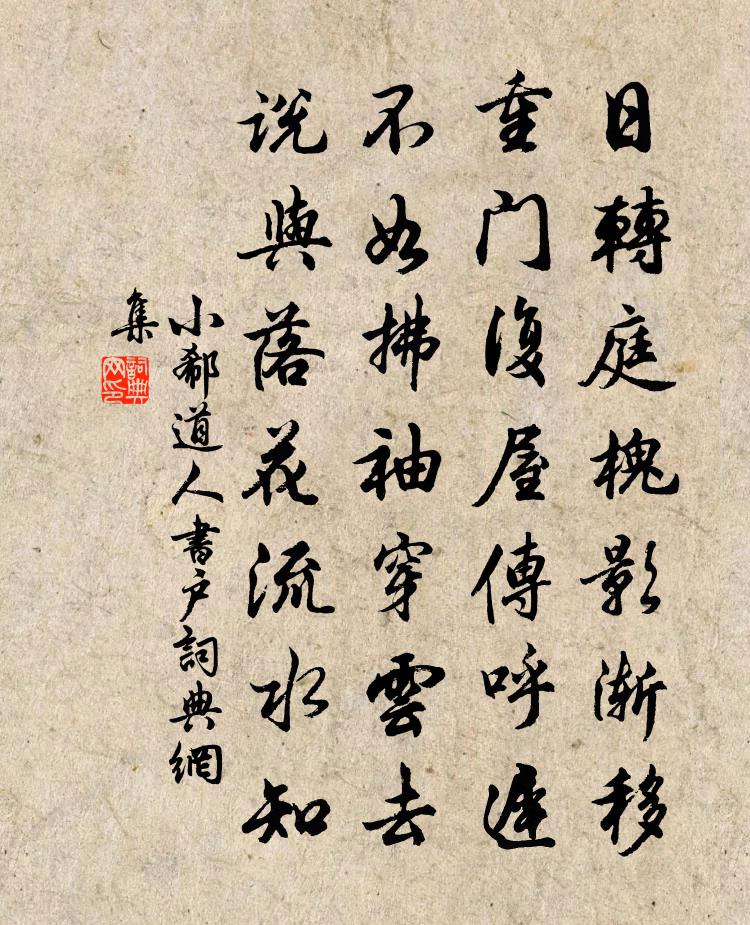 日轉庭槐影漸移
重门復屋傳呼遲
不如拂袖穿雲去
説與落花流水知
小郗道人書户詞典網
集
詞典
网印